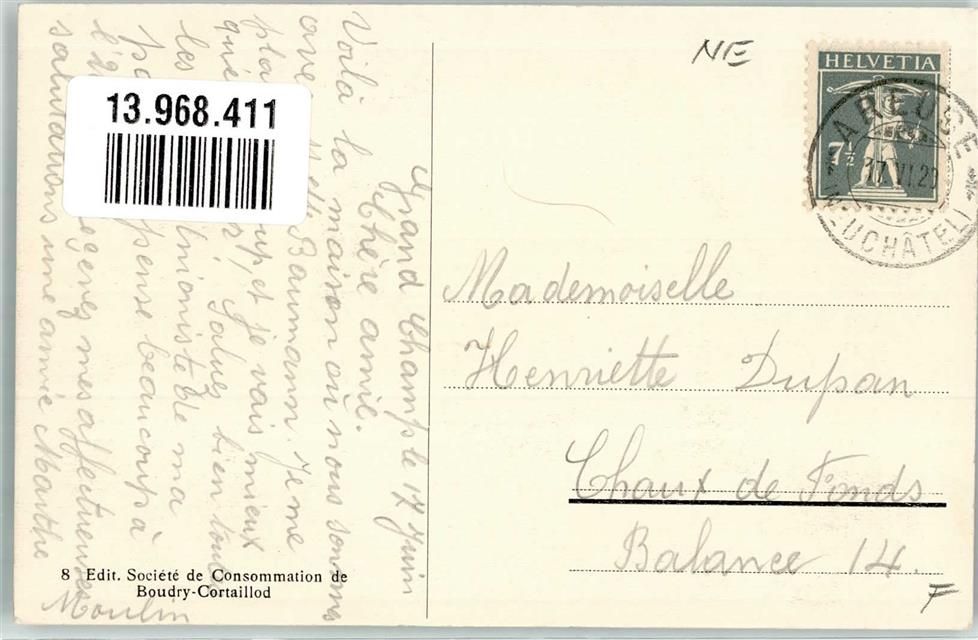 Grand Champ le 17 Juin
Chère amie.
Voilà la maison où nous sommes
avec Melle Baumann. Je me
plais et je vais mieux
bien toutes
les de ma
pense beaucoup à
mes affectueuses
salutations une amie Marthe
Moulin
13.968.411
NE
HELVETIA
7½
AREUSE
17.VI.2
NEUCHÂTEL
Mademoiselle
Henriette Dupan
Chaux de Fonds
Balance 14.
F
8 Edit. Société de Consommation de
Boudry-Cortaillod